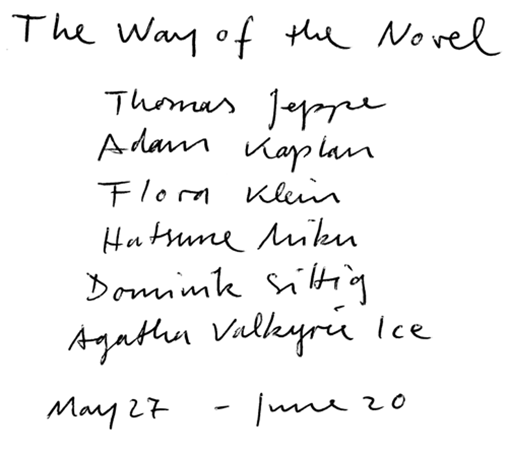 The Way of the Novel
Thomas Jeppe
Adam Kaplan
Flora Klein
Hatsune Miku
Dominik Sittig
Agatha Valkyrie Ice
May 27 - June 20